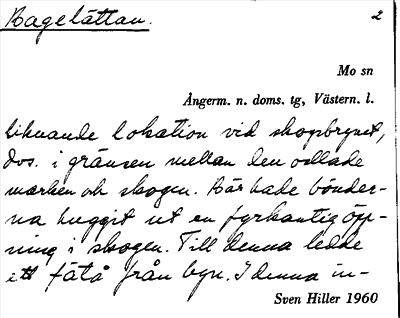 Bagelättan. 2
Mo sn
Ångerm. n. doms. tg, Västern. l.
liknande lokation vid skogsbrynet,
dvs. i gränsen mellan den odlade
marken och skogen. Här hade bönder-
na huggit ut en fyrkantig öpp-
ning i skogen. Till denna ledde
ett fätå från byn. I denna in-
Sven Hiller 1960